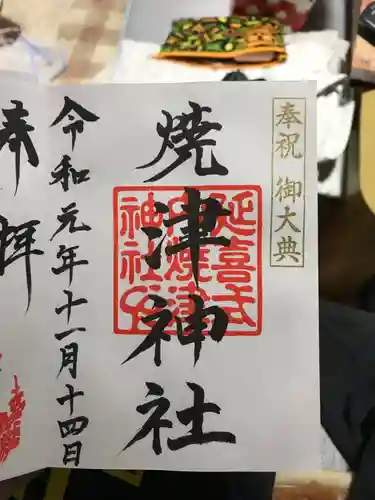 奉祝 御大典
焼津神社
延喜式
内焼津
神社
令和元年十一月十四日
奉拝